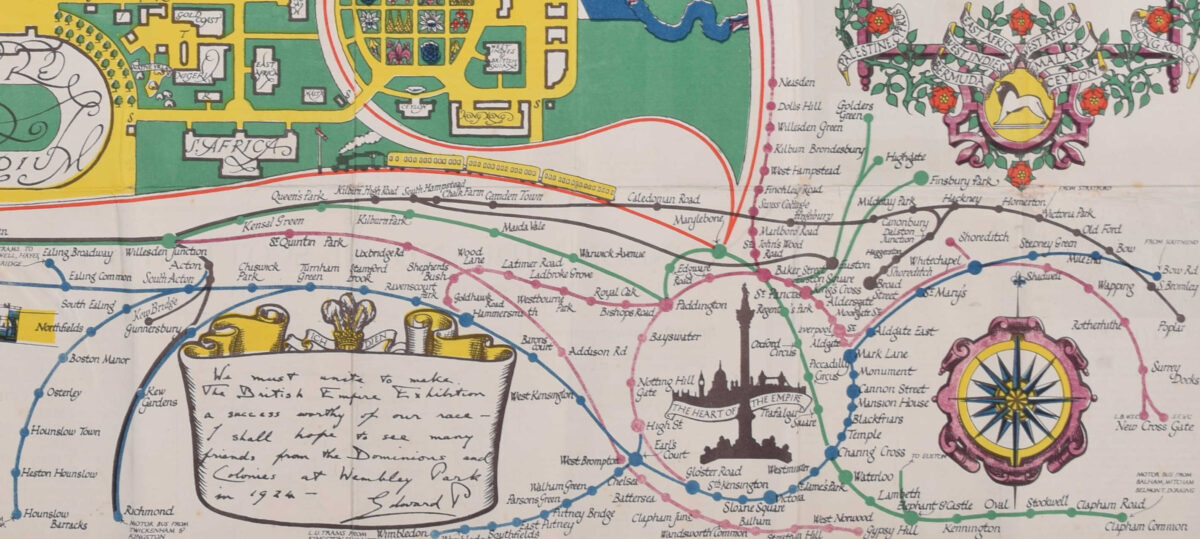 GOLD COAST
NIGERIA
EAST AFRICA
MALTA
CEYLON
HONG KONG
BRITISH
S. AFRICA
DIUM
PALESTINE
EAST AFRICA
WEST AFRICA
WEST INDIES
MALAYA
BERMUDA
CEYLON
HONG KONG
Neasden
Dollis Hill
Willesden Green
Kilburn Brondesbury
West Hampstead
Finchley Road
Swiss Cottage
Marlboro Road
St John's Wood Road
Golders Green
Highgate
Finsbury Park
Queen's Park
Kilburn High Road
South Hampstead
Chalk Farm
Camden Town
Caledonian Road
Highbury
Mildmay Park
Canonbury
Dalston Junction
Haggerston
Shoreditch
Broad Street
Hackney
Homerton
FROM STRATFORD
Victoria Park
Old Ford
Bow
FROM SOUTHEND
Bow Rd
S. Bromley
Poplar
Kensal Green
Kilburn Park
Maida Vale
Warwick Avenue
Marylebone
Edgware Road
Paddington
Baker Street
Euston
Euston Square
King's Cross
St Pancras
Regent's Park
Aldersgate
Moorgate St
Liverpool St
Aldgate
Aldgate East
Shoreditch
Whitechapel
St Mary's
Stepney Green
Mile End
Shadwell
Wapping
Rotherhithe
Surrey Docks
New Cross Gate
Willesden Junction
St Quintin Park
TRAMS TO
Ealing Broadway
Ealing Common
Acton
South Acton
Chiswick Park
Turnham Green
Uxbridge Rd
Stamford Brook
Ravenscourt Park
Shepherds Bush
Goldhawk Road
Hammersmith
Wood Lane
Latimer Road
Ladbroke Grove
Westbourne Park
Royal Oak
Bishops Road
South Ealing
Northfields
Boston Manor
Osterley
Hounslow Town
Heston Hounslow
Hounslow Barracks
Kew Bridge
Gunnersbury
Kew Gardens
Richmond
MOTOR BUS FROM
TWICKENHAM &
KINGSTON
ICH DIEN
We must unite to make
The British Empire Exhibition
a success worthy of our race —
I shall hope to see many
friends from the Dominions and
Colonies at Wembley Park
in 1924 —
Edward P
Barons Court
West Kensington
Addison Rd
Bayswater
Notting Hill Gate
High St
Earl's Court
West Brompton
Chelsea
Battersea
Clapham Junc
Wandsworth Common
Balham
Streatham Hill
West Norwood
Gypsy Hill
Walham Green
Parsons Green
Putney Bridge
East Putney
Southfields
Wimbledon
L.U. TRAMS FROM
Gloster Road
Sth Kensington
Sloane Square
Victoria
St James Park
Westminster
Charing Cross
Temple
Blackfriars
Mansion House
Cannon Street
Monument
Mark Lane
Oxford Circus
Piccadilly Circus
Trafalgar Square
THE HEART OF THE EMPIRE
Waterloo
TO EUSTON
Lambeth
Elephant & Castle
Kennington
Oval
Stockwell
Clapham Road
Clapham Common
MOTOR BUS FROM
BALHAM, MITCHAM
BELMONT, DORKING